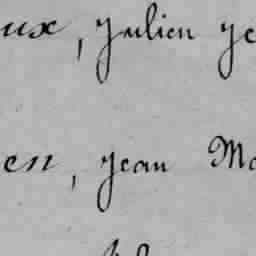 ux, Julien Je
en, Jean Ma